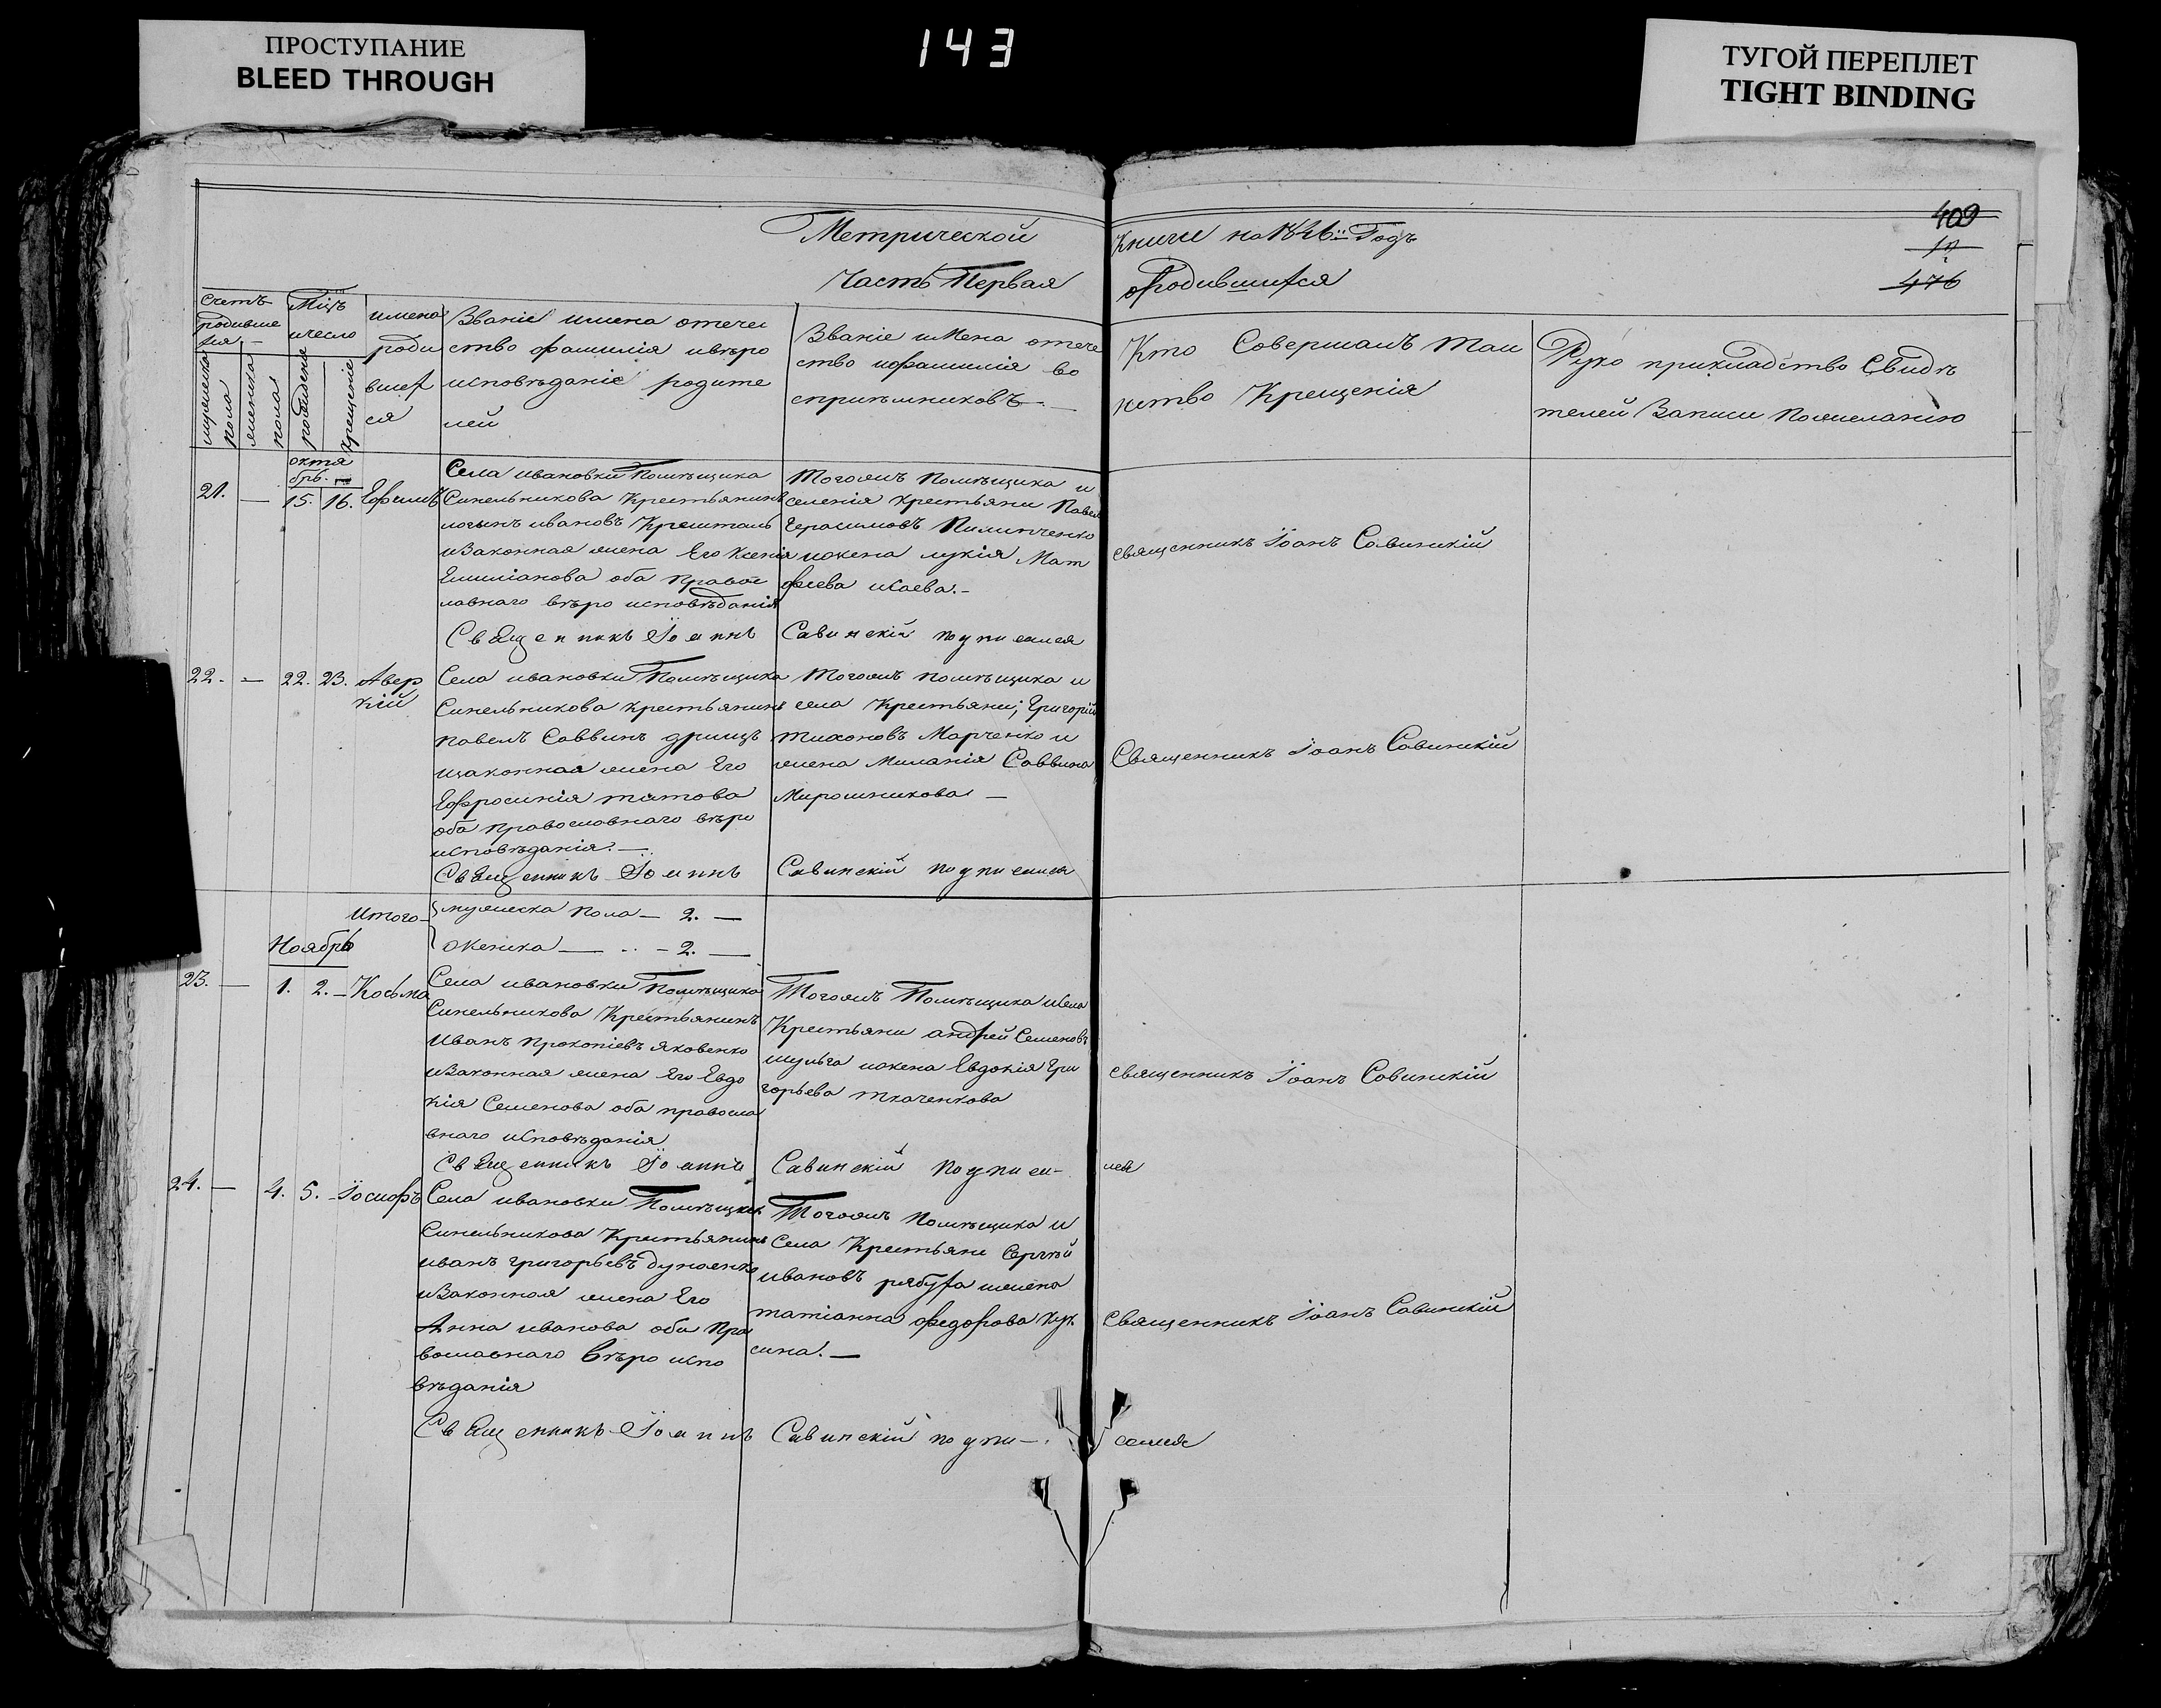 ПРОСТУПАНИЕ
BLEED THROUGH
143
ТУГОЙ ПЕРЕПЛЕТ
TIGHT BINDING
409
476
Метрической Книги на Годъ
Часть Первая о родившихся
счетъ родивше хся
мужеска пола
женска пола
Мцъ ичесло
рождения
крещение
имена роди вшех ся
Званіе имена отече
ство фамилія ивѣро
исповѣданіе родите
лей
Званіе имена отече
ство ифамилія во
спріѣмниковъ
Кто Совершалъ Таи
нство Крещенія
Руко прикладство Свидѣ
телей Записи Пожеланію
октя
брь
21. — 15. 16. Ефимъ
Села ивановки Помѣщика
Синельникова Крестьянинъ
ивановъ
изаконная жена Его Ксенія
Емиліанова оба Правос
лавнаго вѣро исповѣданія
Тогожъ Помѣщика и
селенія крестьяни Павел
Герасимовъ Пилипченко
ижена лукія Мат
фіева Исаева.
священникъ Іоанъ Савинскій
Священникъ Іоаннъ Савинскій подписался
22. — 22. 23. Авер
кій
Села ивановки Помѣщика
Синельникова крестьянинъ
павелъ Саввинъ
изаконная жена Его
Ефросинія титова
оба православнаго вѣро
исповѣданія.
Тогожъ помѣщика и
села Крестьяни; Григорій
тихоновъ Марченко и
жена Миланія Саввина
Мирошникова
Священникъ Іоанъ Савинскій
Священникъ Іоаннъ Савинскій подписался
Итого
мужеска пола — 2. —
женска — 2. —
Ноябрь
23. — 1. 2. Косьма
Села ивановки Помѣщика
Синельникова Крестьянинъ
Иванъ Прокопіевъ Яковенко
изаконная жена Его Евдо
кія Семенова оба правосла
внаго исповѣданія
Тогожъ Помѣщика исела
Крестьяни андрей Семеновъ
шульга ижена Евдокія Гри
горьева ткаченкова
священникъ Іоанъ Савинскій
Священникъ Іоаннъ Савинскій подписа-лся
24. — 4. 5. Іосифъ
Села ивановки Помѣщика
Синельникова Крестьянинъ
иванъ григорьевъ
изаконная жена Его
Анна иванова оба Пра
вославнаго вѣро испо
вѣданія
Тогожъ помѣщика и
Села Крестьяни Сергѣй
ивановъ рябуха ижена
татіанна федорова
сина.
священникъ Іоанъ Савинскій
Священникъ Іоаннъ Савинскій подпи-сался